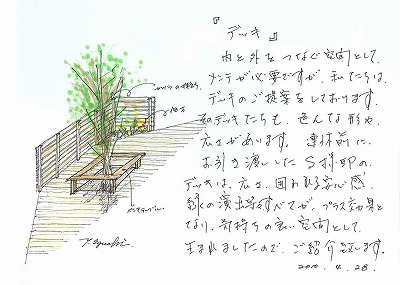 『デッキ』
内と外をつなぐ空間として、
メンテが必要ですが、私たちは、
デッキのご提案をしております。
そのデッキたちも、色んな形や、
広さがあります。連休前に
お引き渡しした S様邸の、
デッキは、広さ、囲われる安心感、
緑の演出等すべてが、プラス効果と
なり、気持ちの良い空間として、
生まれましたので、ご紹介致します。
2010. 4. 28.